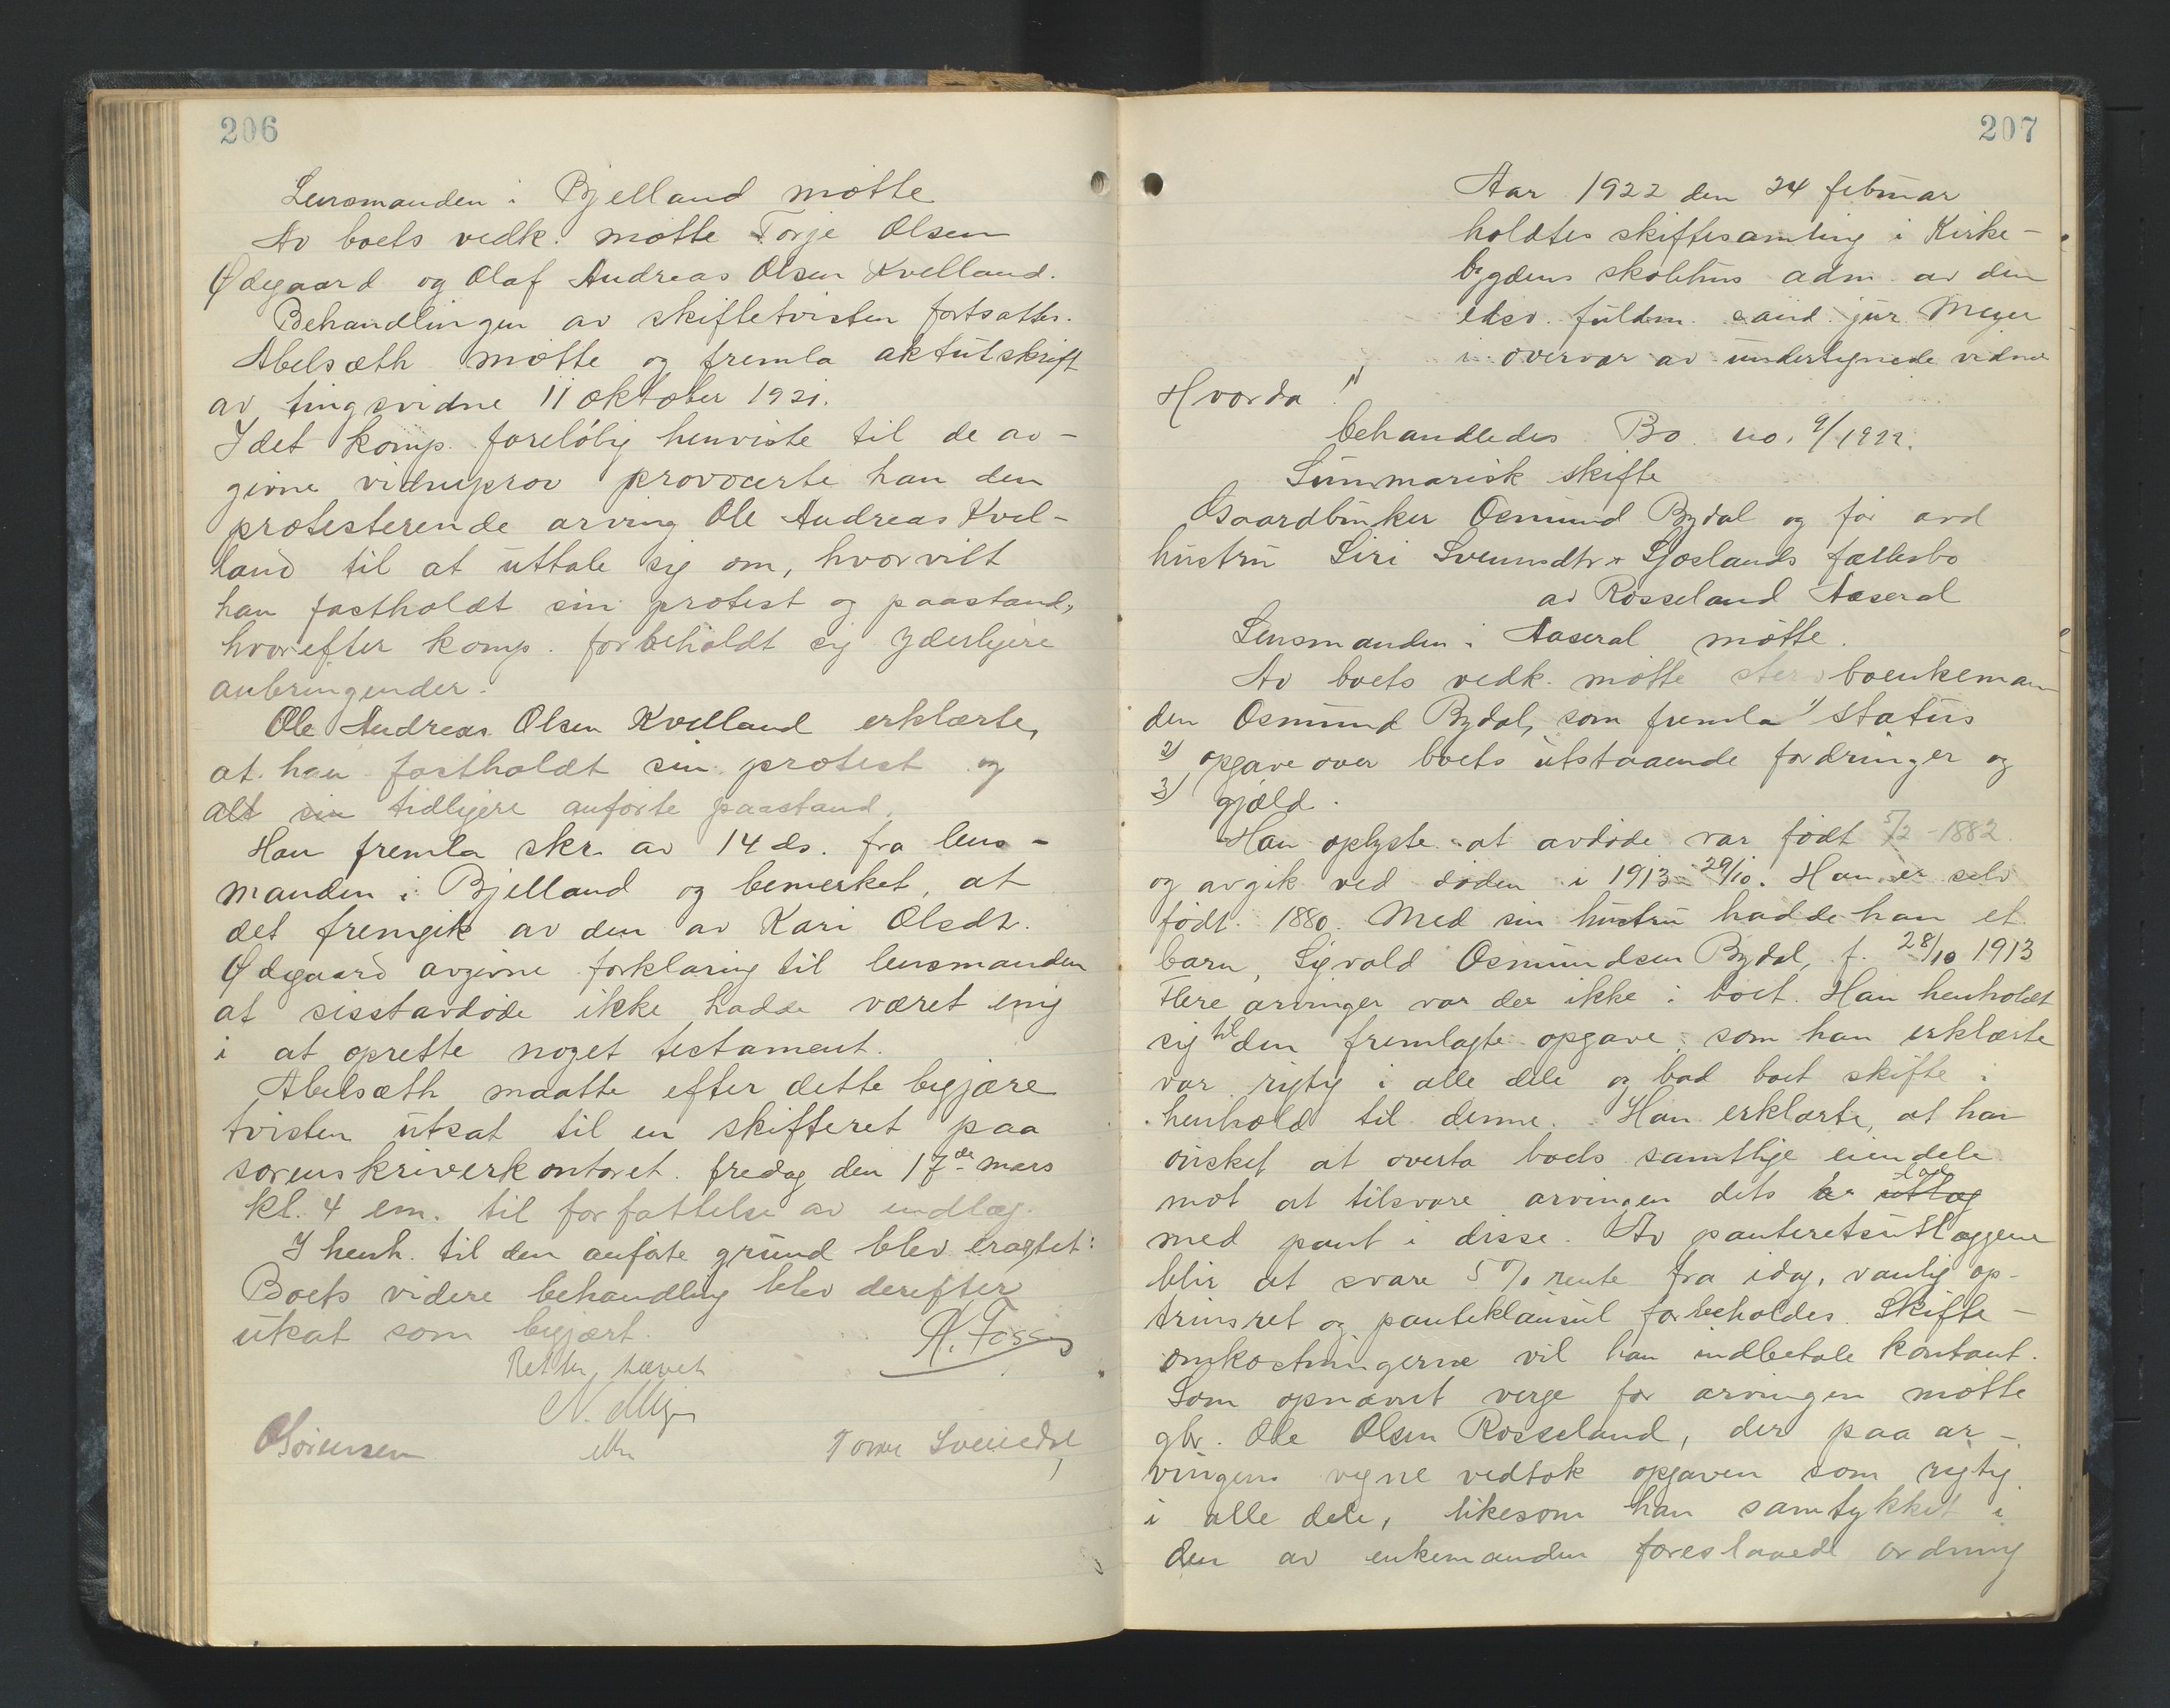 206
Lensmanden i Bjelland møtte
Av boets vedk. møtte Torje Olsen
Ødegaard og Olaf Andreas Olsen Kvelland.
Behandlingen av skiftetvisten fortsattes.
Abelsæth møtte og fremla aktutskrift
av tingsvidne 11 oktober 1921.
Idet komp. foreløbig henviste til de av-
givne vidneprov provocerte han den
protesterende arving Ole Andreas Kvel-
land til at uttale sig om, hvorvilt
han fastholdt sin protest og paastand,
hvorefter komp. forbeholdt sig yderligere
anbringender.
Ole Andreas Olsen Kvelland erklærte,
at han fastholdt sin protest og
alt sin tidligere anførte paastand.
Han fremla skr. av 14 ds. fra lens-
manden i Bjelland og bemerket, at
det fremgik av den av Kari Olsdt.
Ødegaard avgivne forklaring til lensmanden
at sisstavdøde ikke hadde været enig
i at oprette noget testament.
Abelsæth maatte efter dette begjære
tvisten utsat til en skifteret paa
sorenskriverkontoret fredag den 17de mars
kl. 4 em. til forfattelse av indlæg.
I henh. til den anførte grund blev eragtet:
Boets videre behandling blev derefter
utsat som begjært.
Retten hævet
N. Meyer
Sørensen
207
Aar 1922 den 24 februar
holdtes skiftesamling i Kirke-
bygdens skolehus adm. av den
edsv. fuldm. cand. jur. Meyer
i overvær av undertegnede vidner
Hvorda!"
behandledes Bo no. 9/1922.
Summarisk skifte
Gaardbruker Osmund Bydal og før avd
hustru Siri Svennsdtr Ljoslands fællesbo
av Rosseland Aaseral
Lensmanden i Aaseral møtte.
Av boets vedk. møtte boenkeman-
den Osmund Bydal, som fremla 1) status
2) opgave over boets utstaaende fordringer og
3) gjæld.
Han oplyste at avdøde var født 5/2-1882
og avgik ved døden i 1913 - 29/10. Han er selv
født 1880. Med sin hustru hadde han et
barn, Sigvald Osmundsen Bydal, f. 28/10 1913
Flere arvinger var der ikke i boet. Han henholdt
sig til den fremlagte opgave, som han erklærte
var rigtig i alle dele og bad boet skifte i
henhold til denne. Han erklærte, at han
ønsket at overta boets samtlige eiendele
mot at tilsvare arvingen dets utlæg
med pant i disse. Av panteretsutlæggene
blir at svare 5% rente fra idag, vanlig op-
trinsret og panteklausul forbeholdes. Skifte-
omkostningerne vil han indbetale kontant.
Som opnævnt verge for arvingen møtte
gbr. Ole Olsen Rosseland, der paa ar-
vingens vegne vedtok opgaven som rigtig
i alle dele, likesom han samtykket i
den av enkemanden foreslaaede ordning